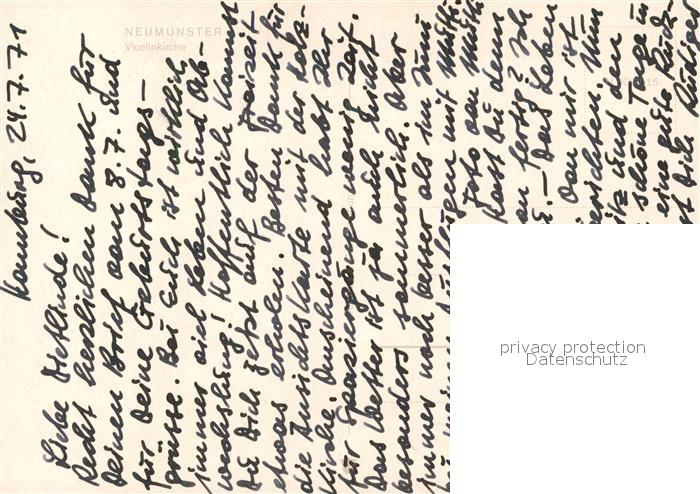 NEUMÜNSTER
Vicelinkirche
Hamburg, 24.7.71
Liebe Dietlinde!
Recht herzlichen Dank für
Deinen Brief vom 8.7. und
für Deine Geburtstags-
grüsse. Bei Euch ist wirklich
immer viel Leben und Ab-
wechslung! Hoffentlich kannst
Du Dich jetzt auf der Freizeit
etwas erholen. Besten Dank für
die Ansichtskarte mit der Holz-
kirche. Anscheinend habt Ihr
für Spaziergänge wenig Zeit.
Das Wetter ist ja auch nicht
besonders sommerlich. Aber
immer noch besser als im Juni
Ausflügen mit Mutti.
Foto von Mutti
Hast Du denn
fertig? Ich
Das Leben
Von mir ist
berichten. Nun
und
schöne Tage in
eine gute Rück-
Dich
privacy protection
Datenschutz